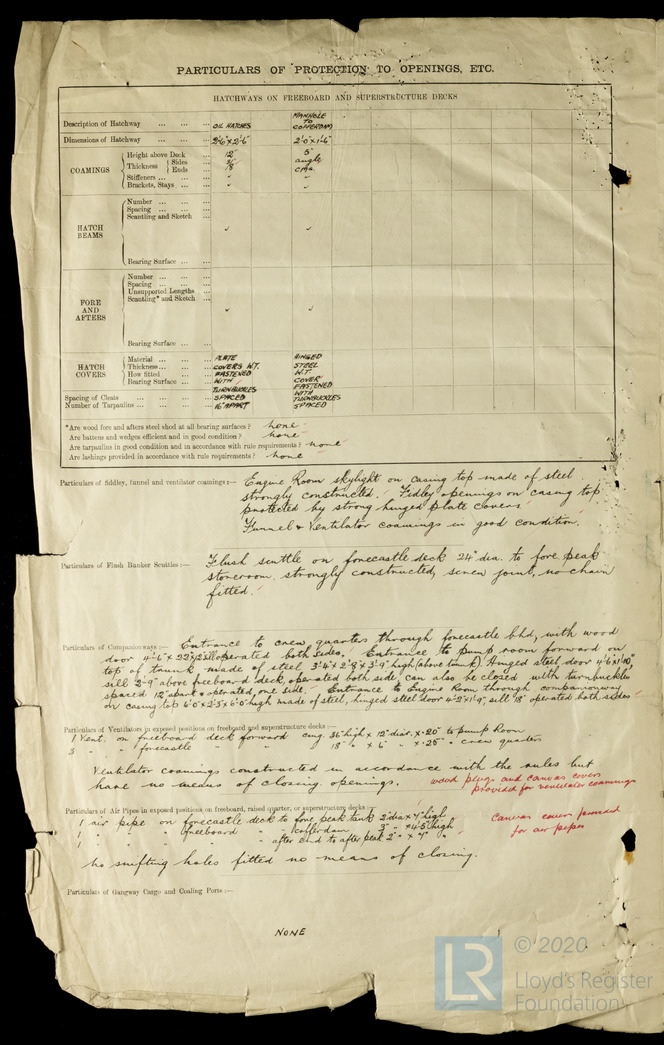 PARTICULARS OF PROTECTION TO OPENINGS, ETC.
HATCHWAYS ON FREEBOARD AND SUPERSTRUCTURE DECKS
Description of Hatchway ... ... ... OIL HATCHES MANHOLE TO COFFERDAM
Dimensions of Hatchway ... ... ... 2'6" x 2'6" 2'0" x 1'6"
COAMINGS
Height above Deck ... 12" 5"
Thickness Sides ... angle
Ends ... cmg.
Stiffeners ... ... ...
Brackets, Stays ... ...
HATCH BEAMS
Number ... ... ...
Spacing ... ... ...
Scantling and Sketch ...
Bearing Surface ... ...
FORE AND AFTERS
Number ... ... ...
Spacing ... ... ...
Unsupported Lengths ...
Scantling* and Sketch ...
Bearing Surface ... ...
HATCH COVERS
Material ... ... ... PLATE HINGED
Thickness ... ... ... COVERS W.T. STEEL
How fitted ... ... FASTENED W.T.
Bearing Surface ... ... WITH COVER
TURNBUCKLES FASTENED
Spacing of Cleats ... ... ... ... SPACED WITH TURNBUCKLES
Number of Tarpaulins ... ... ... ... 16" APART SPACED
*Are wood fore and afters steel shod at all bearing surfaces? none
Are battens and wedges efficient and in good condition? none
Are tarpaulins in good condition and in accordance with rule requirements? none
Are lashings provided in accordance with rule requirements? none
Particulars of fiddley, funnel and ventilator coamings:— Engine Room skylight on casing top made of steel
strongly constructed. Fidley openings on casing top
protected by strong hinged plate covers
Funnel & Ventilator coamings in good condition.
Particulars of Flush Bunker Scuttles:— Flush scuttle on forecastle deck 24" dia. to fore peak
storeroom strongly constructed, screw joint, no chain
fitted.
Particulars of Companionways:— Entrance to crew quarters through forecastle bhd, with wood
door 4'-6" x 22" x 2" sill operated both sides. Entrance to pump room forward on
top of trunk made of steel 3'-4" x 2'-8" x 3'-9" high (above trunk). Hinged steel door 4'-6" x 1'-10",
sill 2'-9" above freeboard deck, operated both side can also be closed with turnbuckles
spaced 12" apart & operated, one side. Entrance to Engine Room through companionway
on casing top 6'-0" x 2'-3" x 6'-0" high made of steel, hinged steel door 4'-2" x 1'-9", sill 18" operated both sides
Particulars of Ventilators in exposed positions on freeboard and superstructure decks:—
1 Vent. on freeboard deck forward cmg. 36" high x 12" diar. x .20" to pump Room
3 - " " forecastle " " 18" " x 6" " x .25" " crew quarters
Ventilator coamings constructed in accordance with the rules but
have no means of closing openings. wood plugs and canvas covers
provided for ventilator coamings
Particulars of Air Pipes in exposed positions on freeboard, raised quarter, or superstructure decks:—
1 air pipe on forecastle deck to fore peak tank 2" dia x 4" high
1 " " " freeboard " " cofferdam 3" " x 4.5" high
1 " " " " " after end to after peak 2" " x 4" "
Canvas covers provided
for air pipes
no snifting holes fitted no means of closing.
Particulars of Gangway Cargo and Coaling Ports:—
NONE
LR
© 2020
Lloyd's Register
Foundation